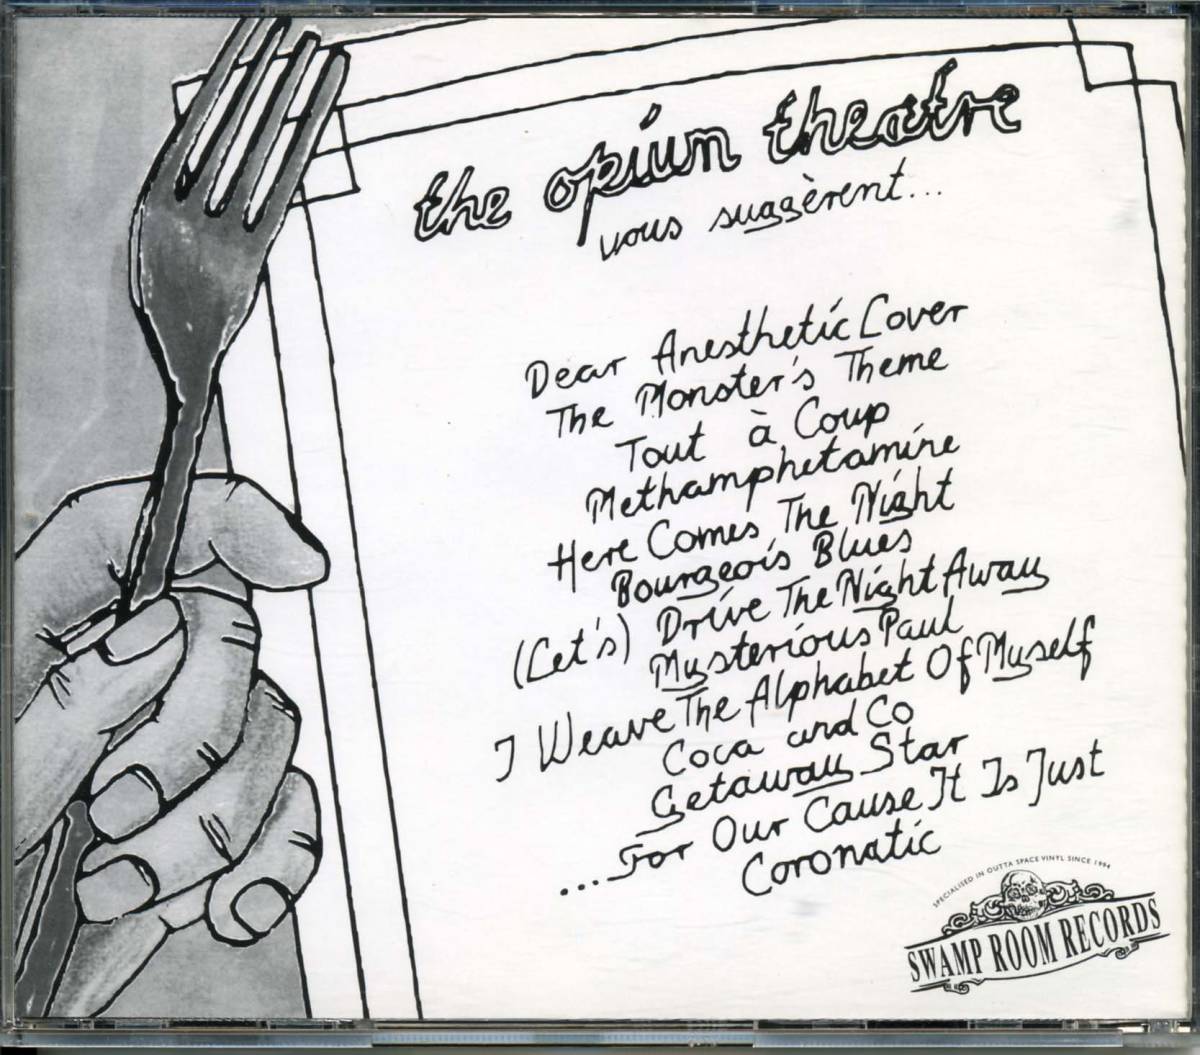 the opium theatre
vous suggèrent...
Dear Anesthetic Lover
The Monster's Theme
Tout à Coup
Methamphetamine
Here Comes The Night
Bourgeois Blues
(Let's) Drive The Night Away
Mysterious Paul
I Weave The Alphabet Of Myself
Coca and Co
Getaway Star
...For Our Cause It Is Just
Coronatic
SPECIALISED IN OUTTA SPACE VINYL SINCE 1994
SWAMP ROOM RECORDS